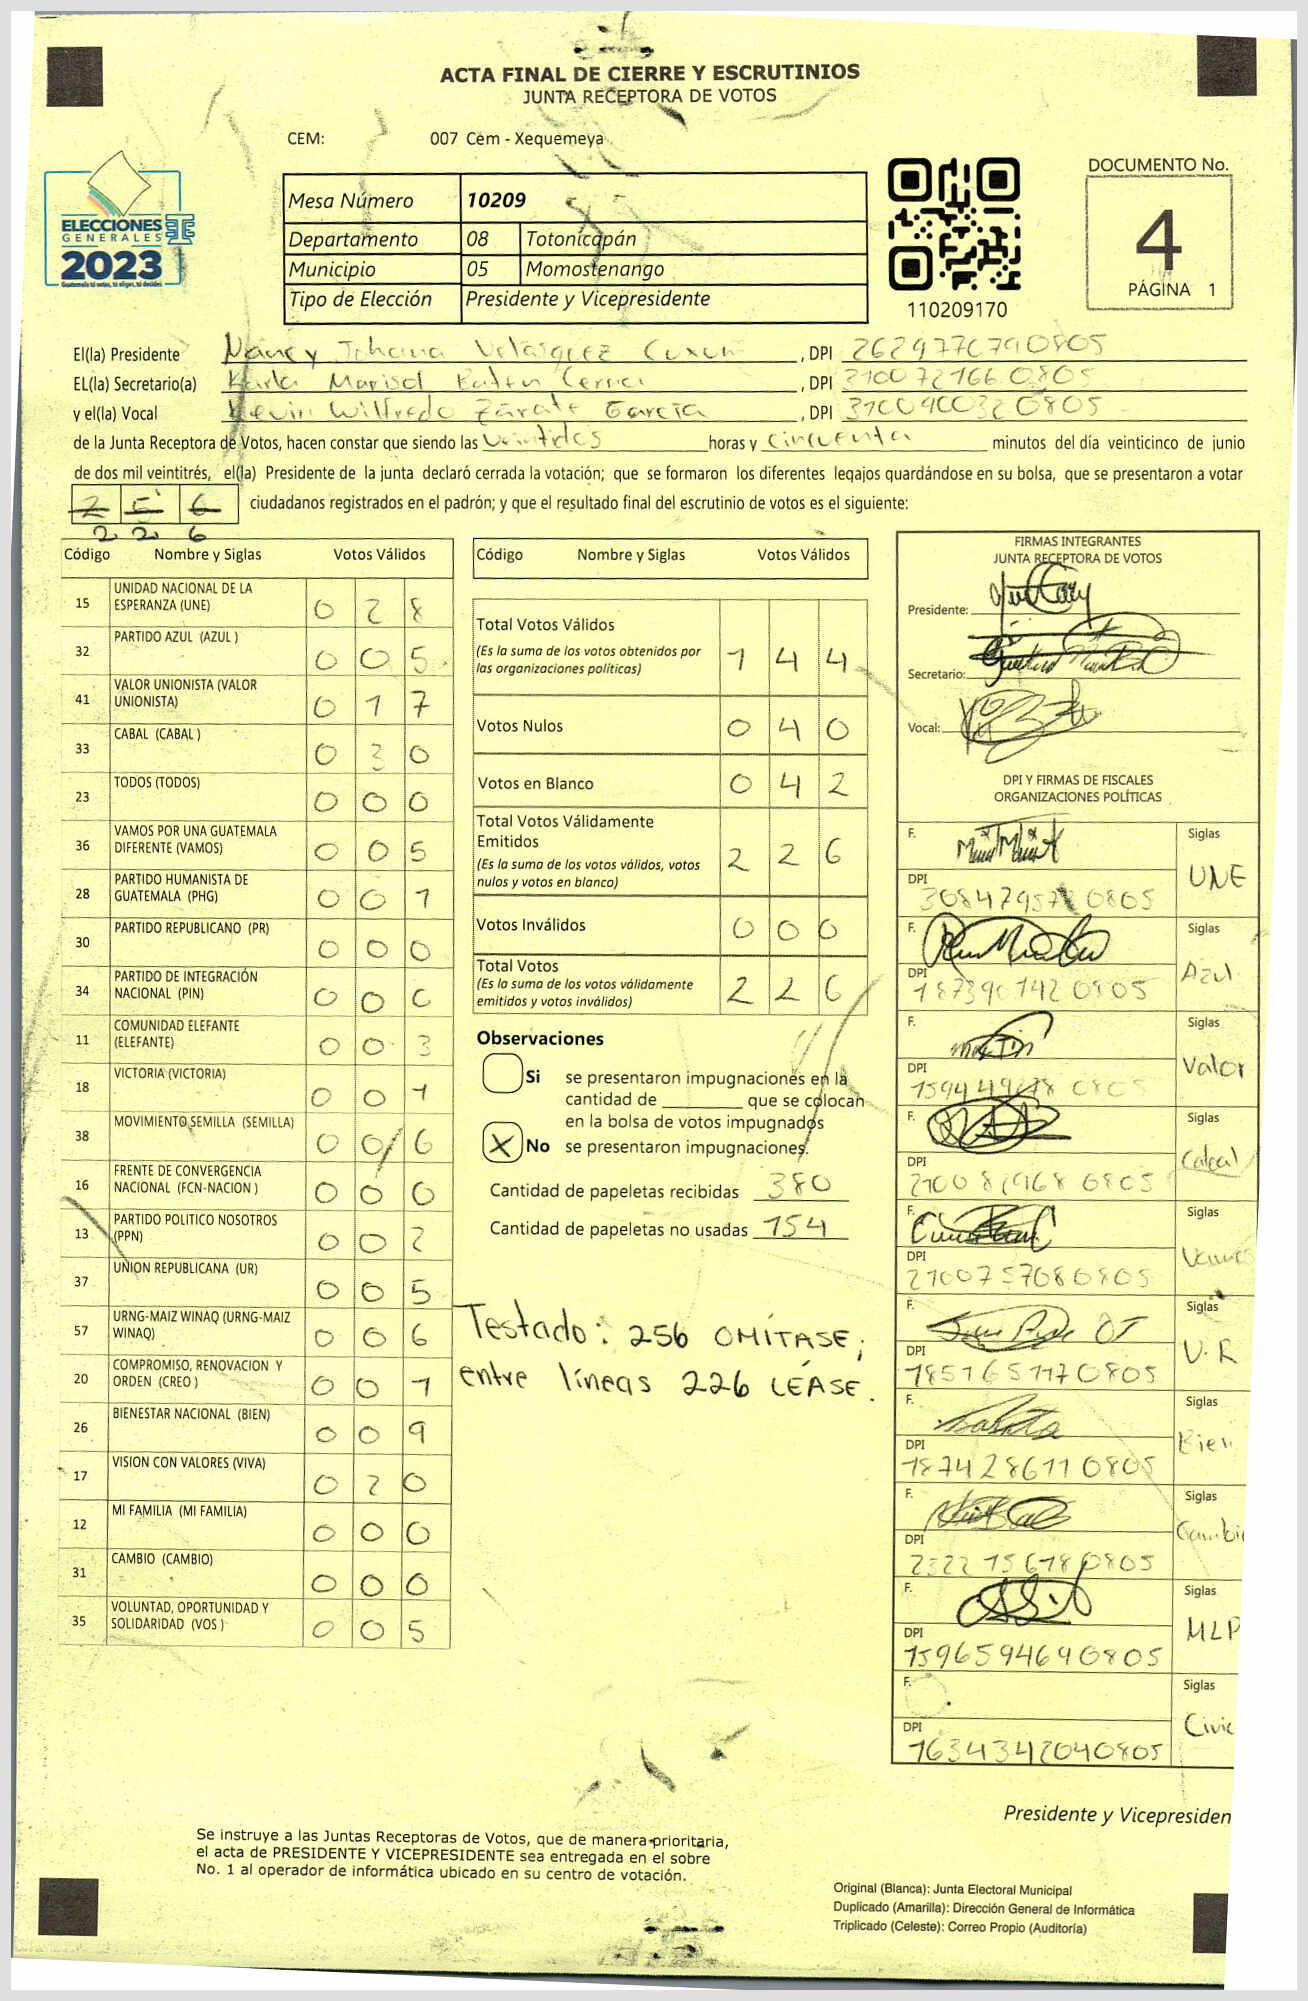 ACTA FINAL DE CIERRE Y ESCRUTINIOS
JUNTA RECEPTORA DE VOTOS
CEM: 007 Cem - Xequemeya
ELECCIONES
GENERALES
2023
Guatemala tú votas, tú eliges, tú decides
Mesa Número 10209
Departamento 08 Totonicapán
Municipio 05 Momostenango
Tipo de Elección Presidente y Vicepresidente
110209170
DOCUMENTO No.
4
PÁGINA 1
El(la) Presidente Nancy Johana Velásquez , DPI 2629770790805
EL(la) Secretario(a) Karla Marisol , DPI 3100721660805
y el(la) Vocal Kevin Wilfredo Zárate García , DPI 3100900320805
de la Junta Receptora de Votos, hacen constar que siendo las veintidos horas y cincuenta minutos del día veinticinco de junio
de dos mil veintitrés, el(la) Presidente de la junta declaró cerrada la votación; que se formaron los diferentes legajos quardándose en su bolsa, que se presentaron a votar
256 ciudadanos registrados en el padrón; y que el resultado final del escrutinio de votos es el siguiente:
226
Código Nombre y Siglas Votos Válidos
15 UNIDAD NACIONAL DE LA ESPERANZA (UNE) 0 2 8
32 PARTIDO AZUL (AZUL ) 0 0 5
41 VALOR UNIONISTA (VALOR UNIONISTA) 0 1 7
33 CABAL (CABAL ) 0 3 0
23 TODOS (TODOS) 0 0 0
36 VAMOS POR UNA GUATEMALA DIFERENTE (VAMOS) 0 0 5
28 PARTIDO HUMANISTA DE GUATEMALA (PHG) 0 0 1
30 PARTIDO REPUBLICANO (PR) 0 0 0
34 PARTIDO DE INTEGRACIÓN NACIONAL (PIN) 0 0 0
11 COMUNIDAD ELEFANTE (ELEFANTE) 0 0 3
18 VICTORIA (VICTORIA) 0 0 1
38 MOVIMIENTO SEMILLA (SEMILLA) 0 0 6
16 FRENTE DE CONVERGENCIA NACIONAL (FCN-NACION ) 0 0 0
13 PARTIDO POLITICO NOSOTROS (PPN) 0 0 2
37 UNION REPUBLICANA (UR) 0 0 5
57 URNG-MAIZ WINAQ (URNG-MAIZ WINAQ) 0 0 6
20 COMPROMISO, RENOVACION Y ORDEN (CREO ) 0 0 1
26 BIENESTAR NACIONAL (BIEN) 0 0 9
17 VISION CON VALORES (VIVA) 0 2 0
12 MI FAMILIA (MI FAMILIA) 0 0 0
31 CAMBIO (CAMBIO) 0 0 0
35 VOLUNTAD, OPORTUNIDAD Y SOLIDARIDAD (VOS ) 0 0 5
Código Nombre y Siglas Votos Válidos
Total Votos Válidos 1 4 4
(Es la suma de los votos obtenidos por
las organizaciones políticas)
Votos Nulos 0 4 0
Votos en Blanco 0 4 2
Total Votos Válidamente
Emitidos 2 2 6
(Es la suma de los votos válidos, votos
nulos y votos en blanco)
Votos Inválidos 0 0 0
Total Votos 2 2 6
(Es la suma de los votos válidamente
emitidos y votos inválidos)
Observaciones
Si se presentaron impugnaciones en la
cantidad de ________ que se colocan
en la bolsa de votos impugnados
X No se presentaron impugnaciones.
Cantidad de papeletas recibidas 380
Cantidad de papeletas no usadas 154
Testado: 256 OMÍTASE;
entre líneas 226 LÉASE.
FIRMAS INTEGRANTES
JUNTA RECEPTORA DE VOTOS
Presidente:
Secretario:
Vocal:
DPI Y FIRMAS DE FISCALES
ORGANIZACIONES POLÍTICAS
F. Siglas
UNE
DPI
F. Siglas
Azul
DPI
1873901420805
F. Siglas
Valor
DPI
F. Siglas
Cabal
DPI
F. Siglas
Vamos
DPI
2100757080805
F. Siglas
U.R
DPI
1851651170805
F. Siglas
Bien
DPI
1874286110805
F. Siglas
DPI
2322156780805
F. Siglas
MLP
DPI
1596594690805
F. Siglas
DPI
1634342040805
Presidente y Vicepresiden
Se instruye a las Juntas Receptoras de Votos, que de manera prioritaria,
el acta de PRESIDENTE Y VICEPRESIDENTE sea entregada en el sobre
No. 1 al operador de informática ubicado en su centro de votación.
Original (Blanca): Junta Electoral Municipal
Duplicado (Amarilla): Dirección General de Informática
Triplicado (Celeste): Correo Propio (Auditoría)